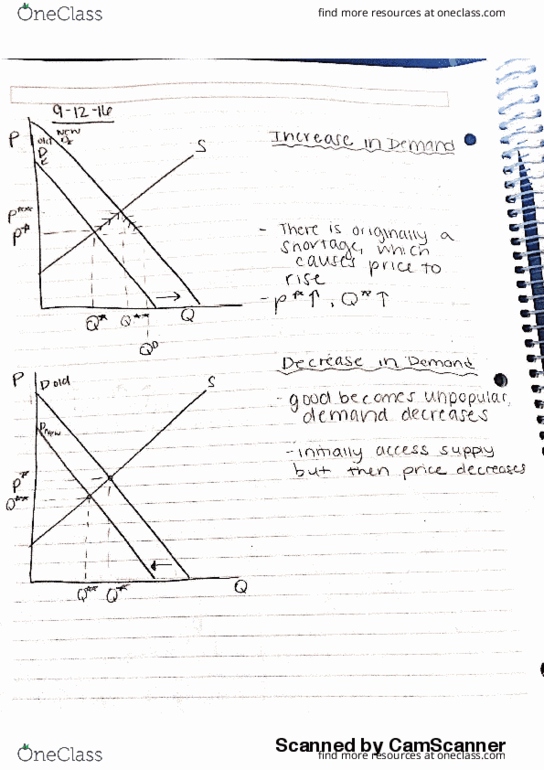 OneClass
find more resources at oneclass.com
9-12-16
P
old
D
New
S
Increase in Demand
P***
P*
- There is originally a
shortage, which
causes price to
rise
- P*↑, Q*↑
Q*
Q**
Q
QD
Decrease in Demand
P
D old
S
- good becomes unpopular,
demand decreases
DNEW
- initially access supply
but then price decreases
P*
Q***
Q**
Q*
Q
Scanned by CamScanner
OneClass
find more resources at oneclass.com